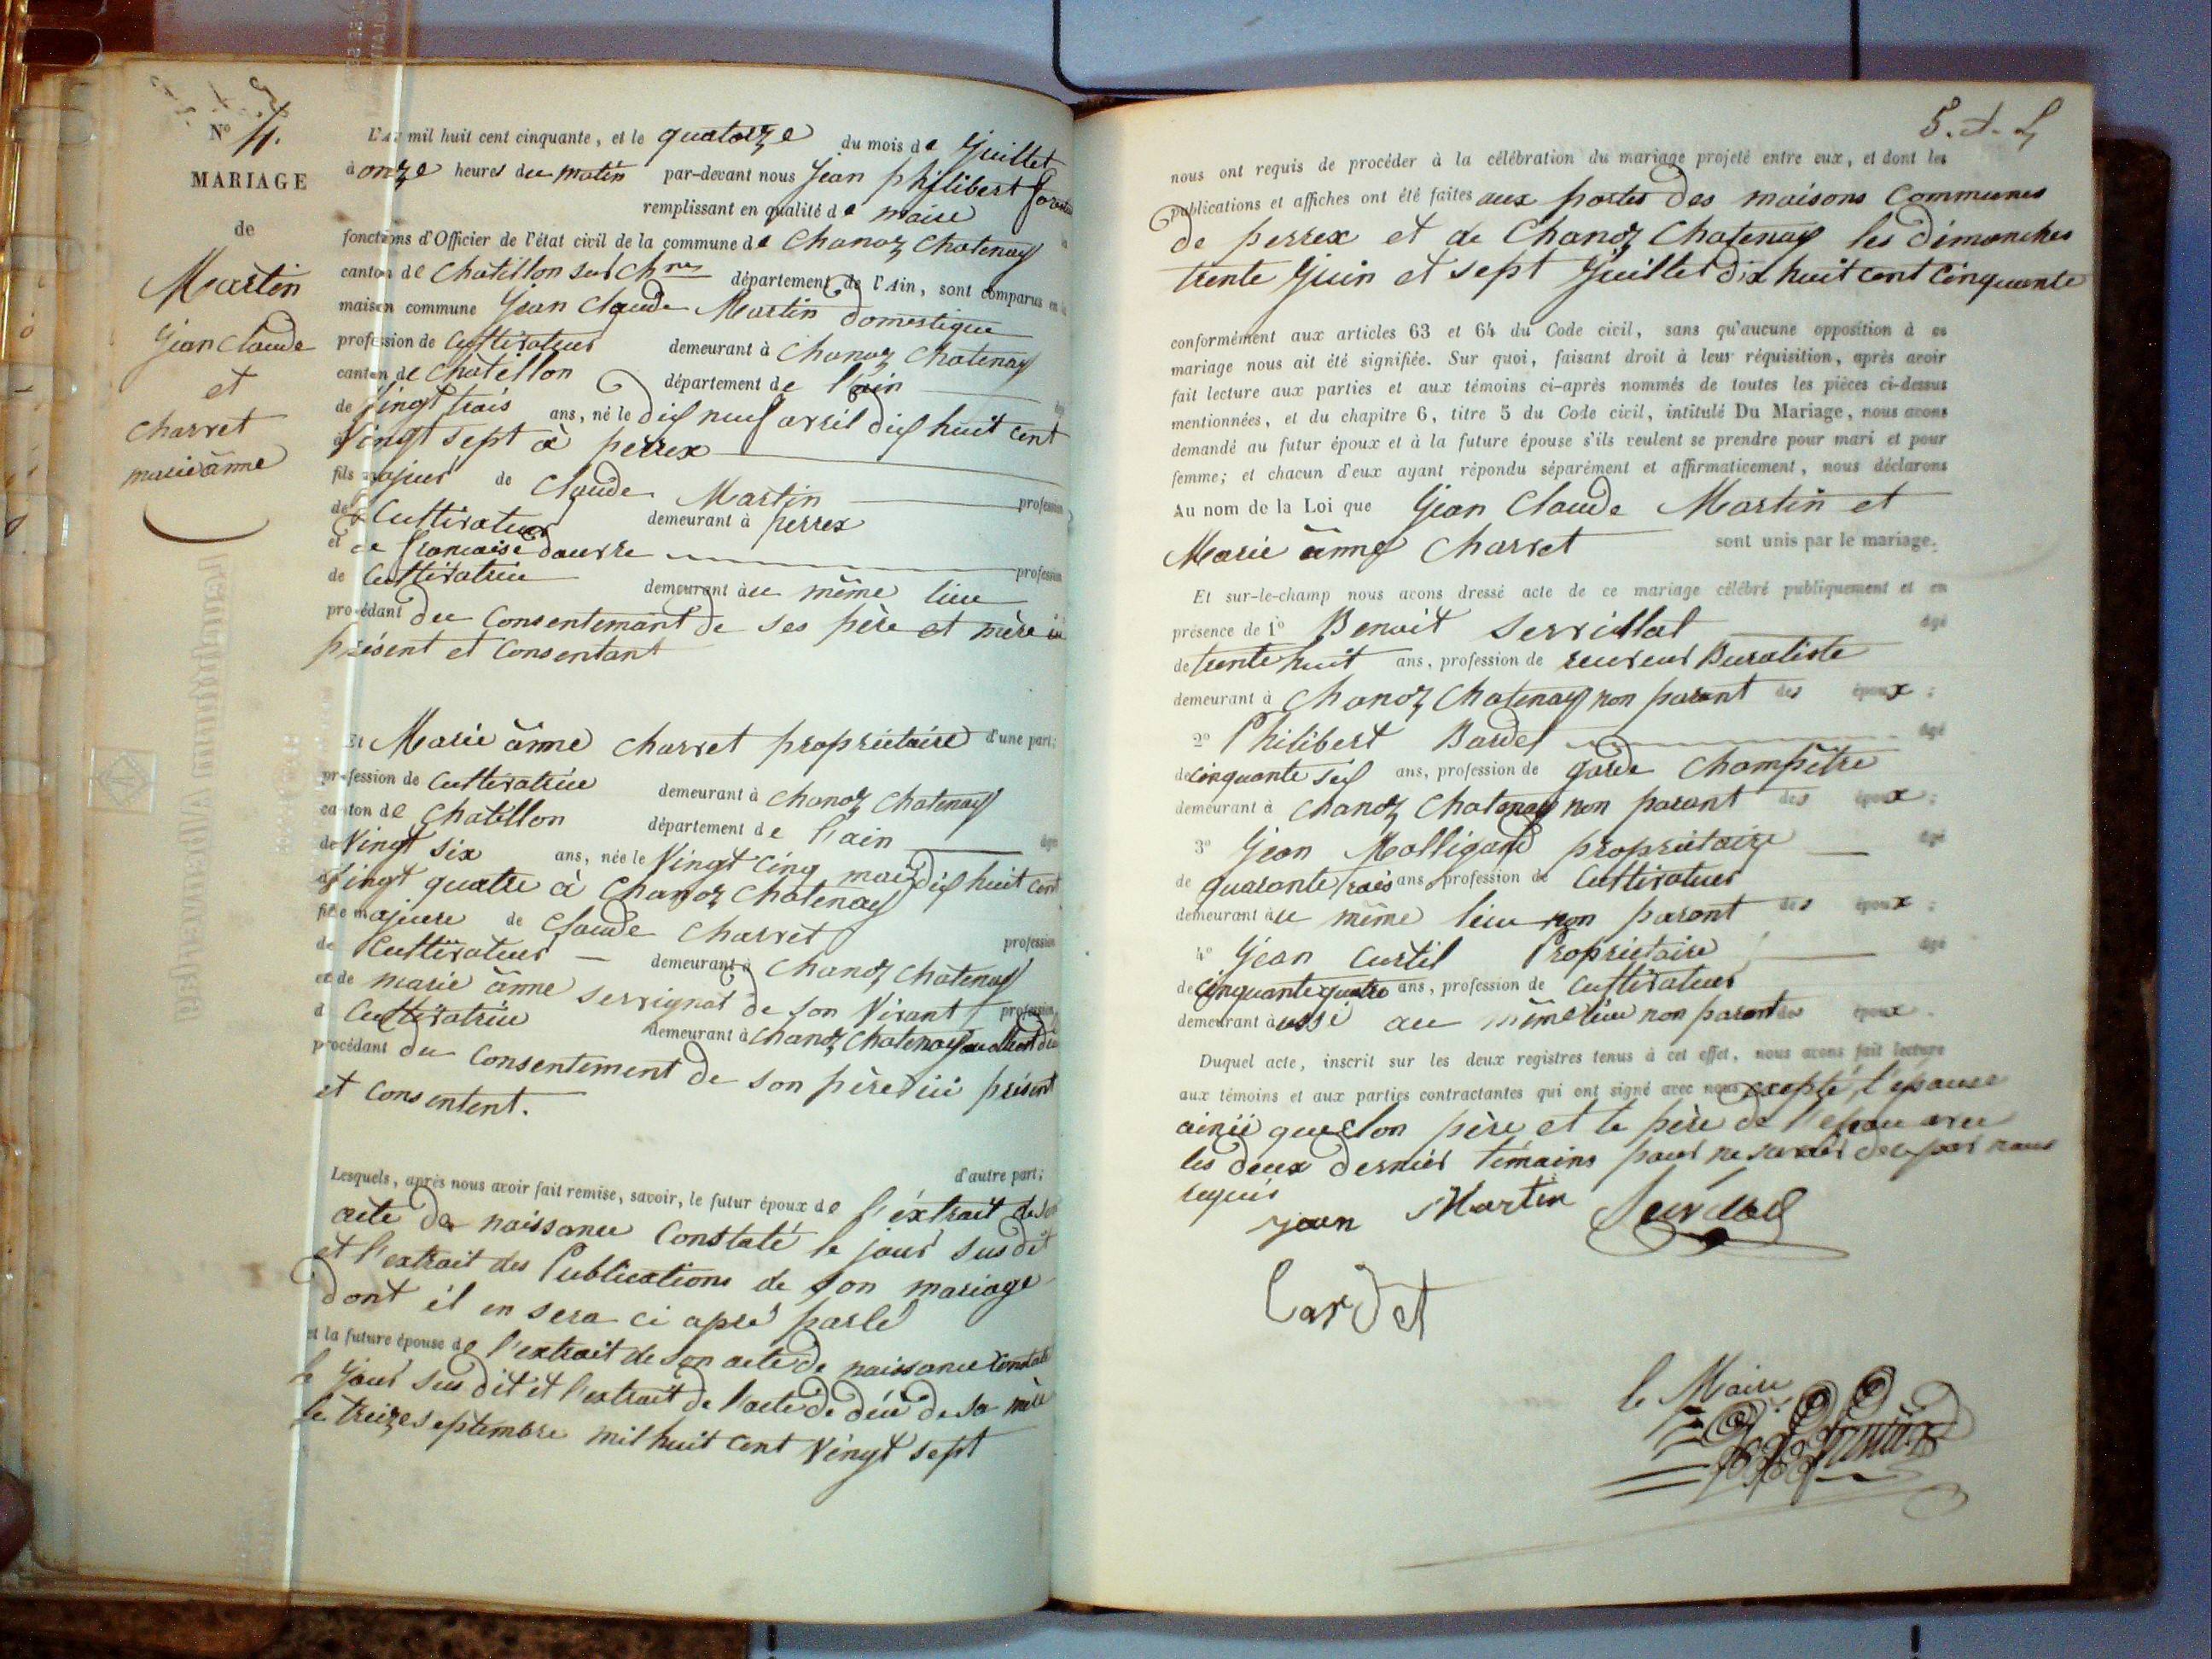 N° 4.
MARIAGE
de
Martin
Jean Claude
et
Charvet
marie ânne
L'An mil huit cent cinquante, et le quatorze du mois de Juillet
à onze heures du matin par-devant nous Jean philibert
remplissant en qualité de maire
fonctions d'Officier de l'état civil de la commune de Chanoz Chatenay
canton de Chatillon sur Chne département de l'Ain, sont comparus en la
maison commune Jean Claude Martin Domestique
profession de Cultivateur demeurant à Chanoz Chatenay
canton de Chatillon département de l'ain
de Vingt trois ans, né le dix neuf avril dix huit cent
Vingt sept à perrex
fils majeur de Claude Martin profession
de Cultivateur demeurant à perrex
et de francoise Daurre profession
de Cultivatrice demeurant àu même lieu
procédant du Consentemant de ses père et mère ici
présent et Consentant
d'une part;
Et Marie ânne Charvet propriétaire
profession de Cultivatrice demeurant à Chanoz Chatenay
canton de Chatillon département de l'ain âgée
de Vingt six ans, née le Vingt Cinq mai dix huit cent
Vingt quatre à Chanoz Chatenay
fille majeure de Claude Charvet profession
de Cultivateur demeurant à Chanoz Chatenay
et de marie ânne servignat de son Vivant profession
de Cultivatrice demeurant à Chanoz Chatenay
procédant du Consentement de son père ici présent
et Consentent.
d'autre part;
Lesquels, après nous avoir fait remise, savoir, le futur époux de l'éxtrait de son
acte de naissance Constaté le jour sus dit
et l'extrait des Publications de son mariage
dont il en sera ci apré parlé
et la future épouse de l'extrait de son acte de naissance Constaté
le Jour sus dit et l'extrait de l'acte de décè de sa mère
le treize septembre mil huit cent Vingt sept
nous ont requis de procéder à la célébration du mariage projeté entre eux, et dont les
publications et affiches ont été faites aux portes des maisons Communes
de perrex et de Chanoz Chatenay les dimanches
trente Juin et sept Juillet dix huit cent Cinquante
conformément aux articles 63 et 64 du Code civil, sans qu'aucune opposition à ce
mariage nous ait été signifiée. Sur quoi, faisant droit à leur réquisition, après avoir
fait lecture aux parties et aux témoins ci-après nommés de toutes les pièces ci-dessus
mentionnées, et du chapitre 6, titre 5 du Code civil, intitulé Du Mariage, nous avons
demandé au futur époux et à la future épouse s'ils veulent se prendre pour mari et pour
femme; et chacun d'eux ayant répondu séparément et affirmativement, nous déclarons
Au nom de la Loi que Jean Claude Martin et
Marie ânne Charvet sont unis par le mariage.
Et sur-le-champ nous avons dressé acte de ce mariage célébré publiquement et en
présence de 1° Benoit Servillat âgé
de trente huit ans, profession de receveur Buraliste
demeurant à Chanoz Chatenay non parant des époux;
2° Philibert Bardet âgé
de cinquante six ans, profession de garde Champêtre
demeurant à Chanoz Chatenay non parant des époux;
3° Jean Malligand propriétaire âgé
de quarante trois ans, profession de Cultivateur
demeurant àu même lieu non parant des époux;
4° Jean Curtil Propriétaire âgé
de Cinquante quatre ans, profession de Cultivateur
demeurant àussi au même lieu non parant des époux.
Duquel acte, inscrit sur les deux registres tenus à cet effet, nous avons fait lecture
aux témoins et aux parties contractantes qui ont signé avec nous excepté l'epouse
ainsi que son père et le père de l'epou avec
les deux dernier témoins pour ne savoir de par nous
requis
jean Martin Servillat
Bardet
le Maire